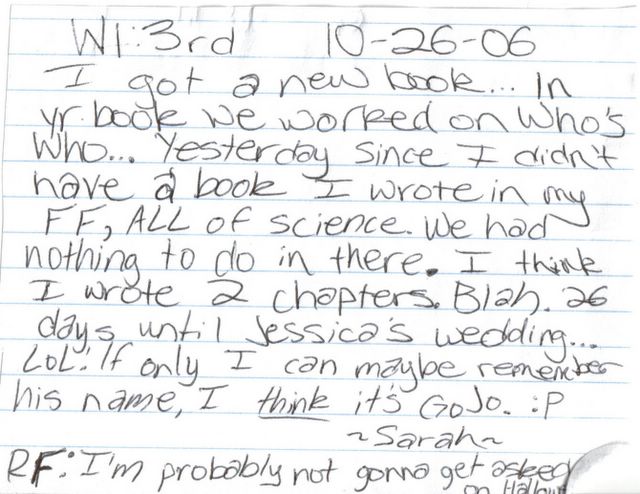 W1:3rd 10-26-06
I got a new book... In
yr book we worked on Who's
Who... Yesterday since I didn't
have a book I wrote in my
FF, ALL of science. We had
nothing to do in there. I think
I wrote 2 chapters. Blah. 26
days until Jessica's wedding...
LOL! If only I can maybe remember
his name, I think it's GoJo. :P
~Sarah~
RF: I'm probably not gonna get asked
on